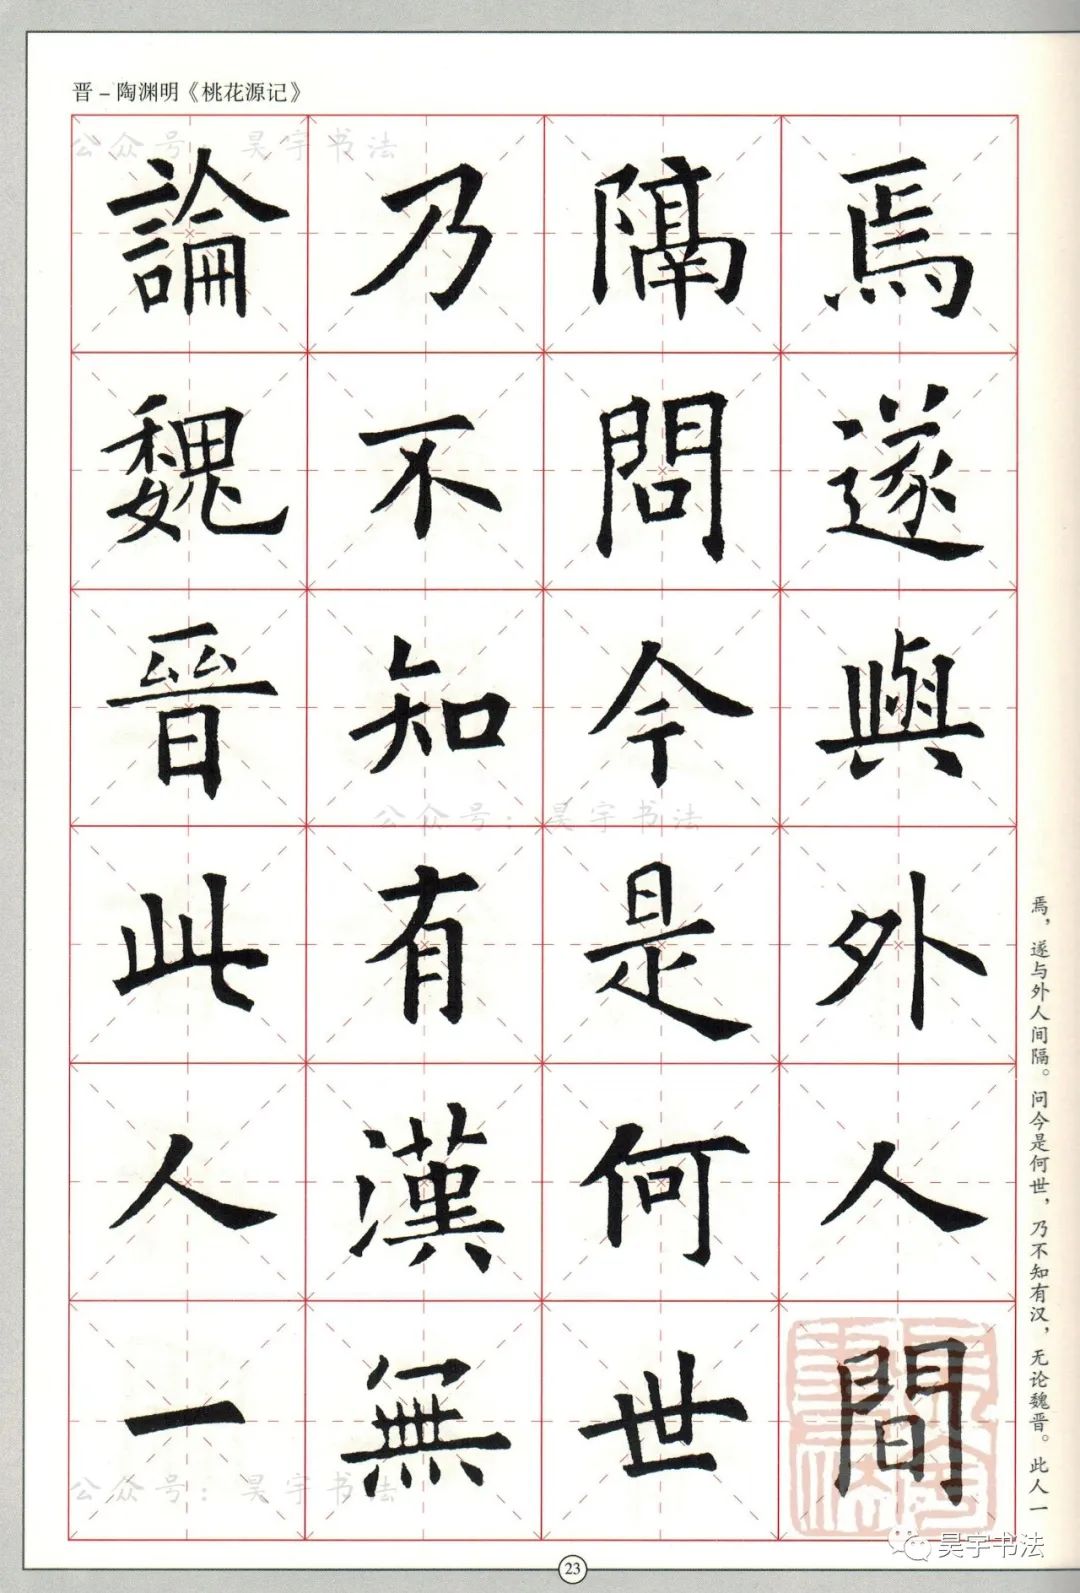 晋－陶渊明《桃花源记》
公众号：昊宇书法
焉遂與外人間
隔問今是何世
乃不知有漢無
論魏晉此人一
焉，遂与外人间隔。问今是何世，乃不知有汉，无论魏晋。此人一
公众号：昊宇书法
公众号：昊宇书法
昊宇书法
23